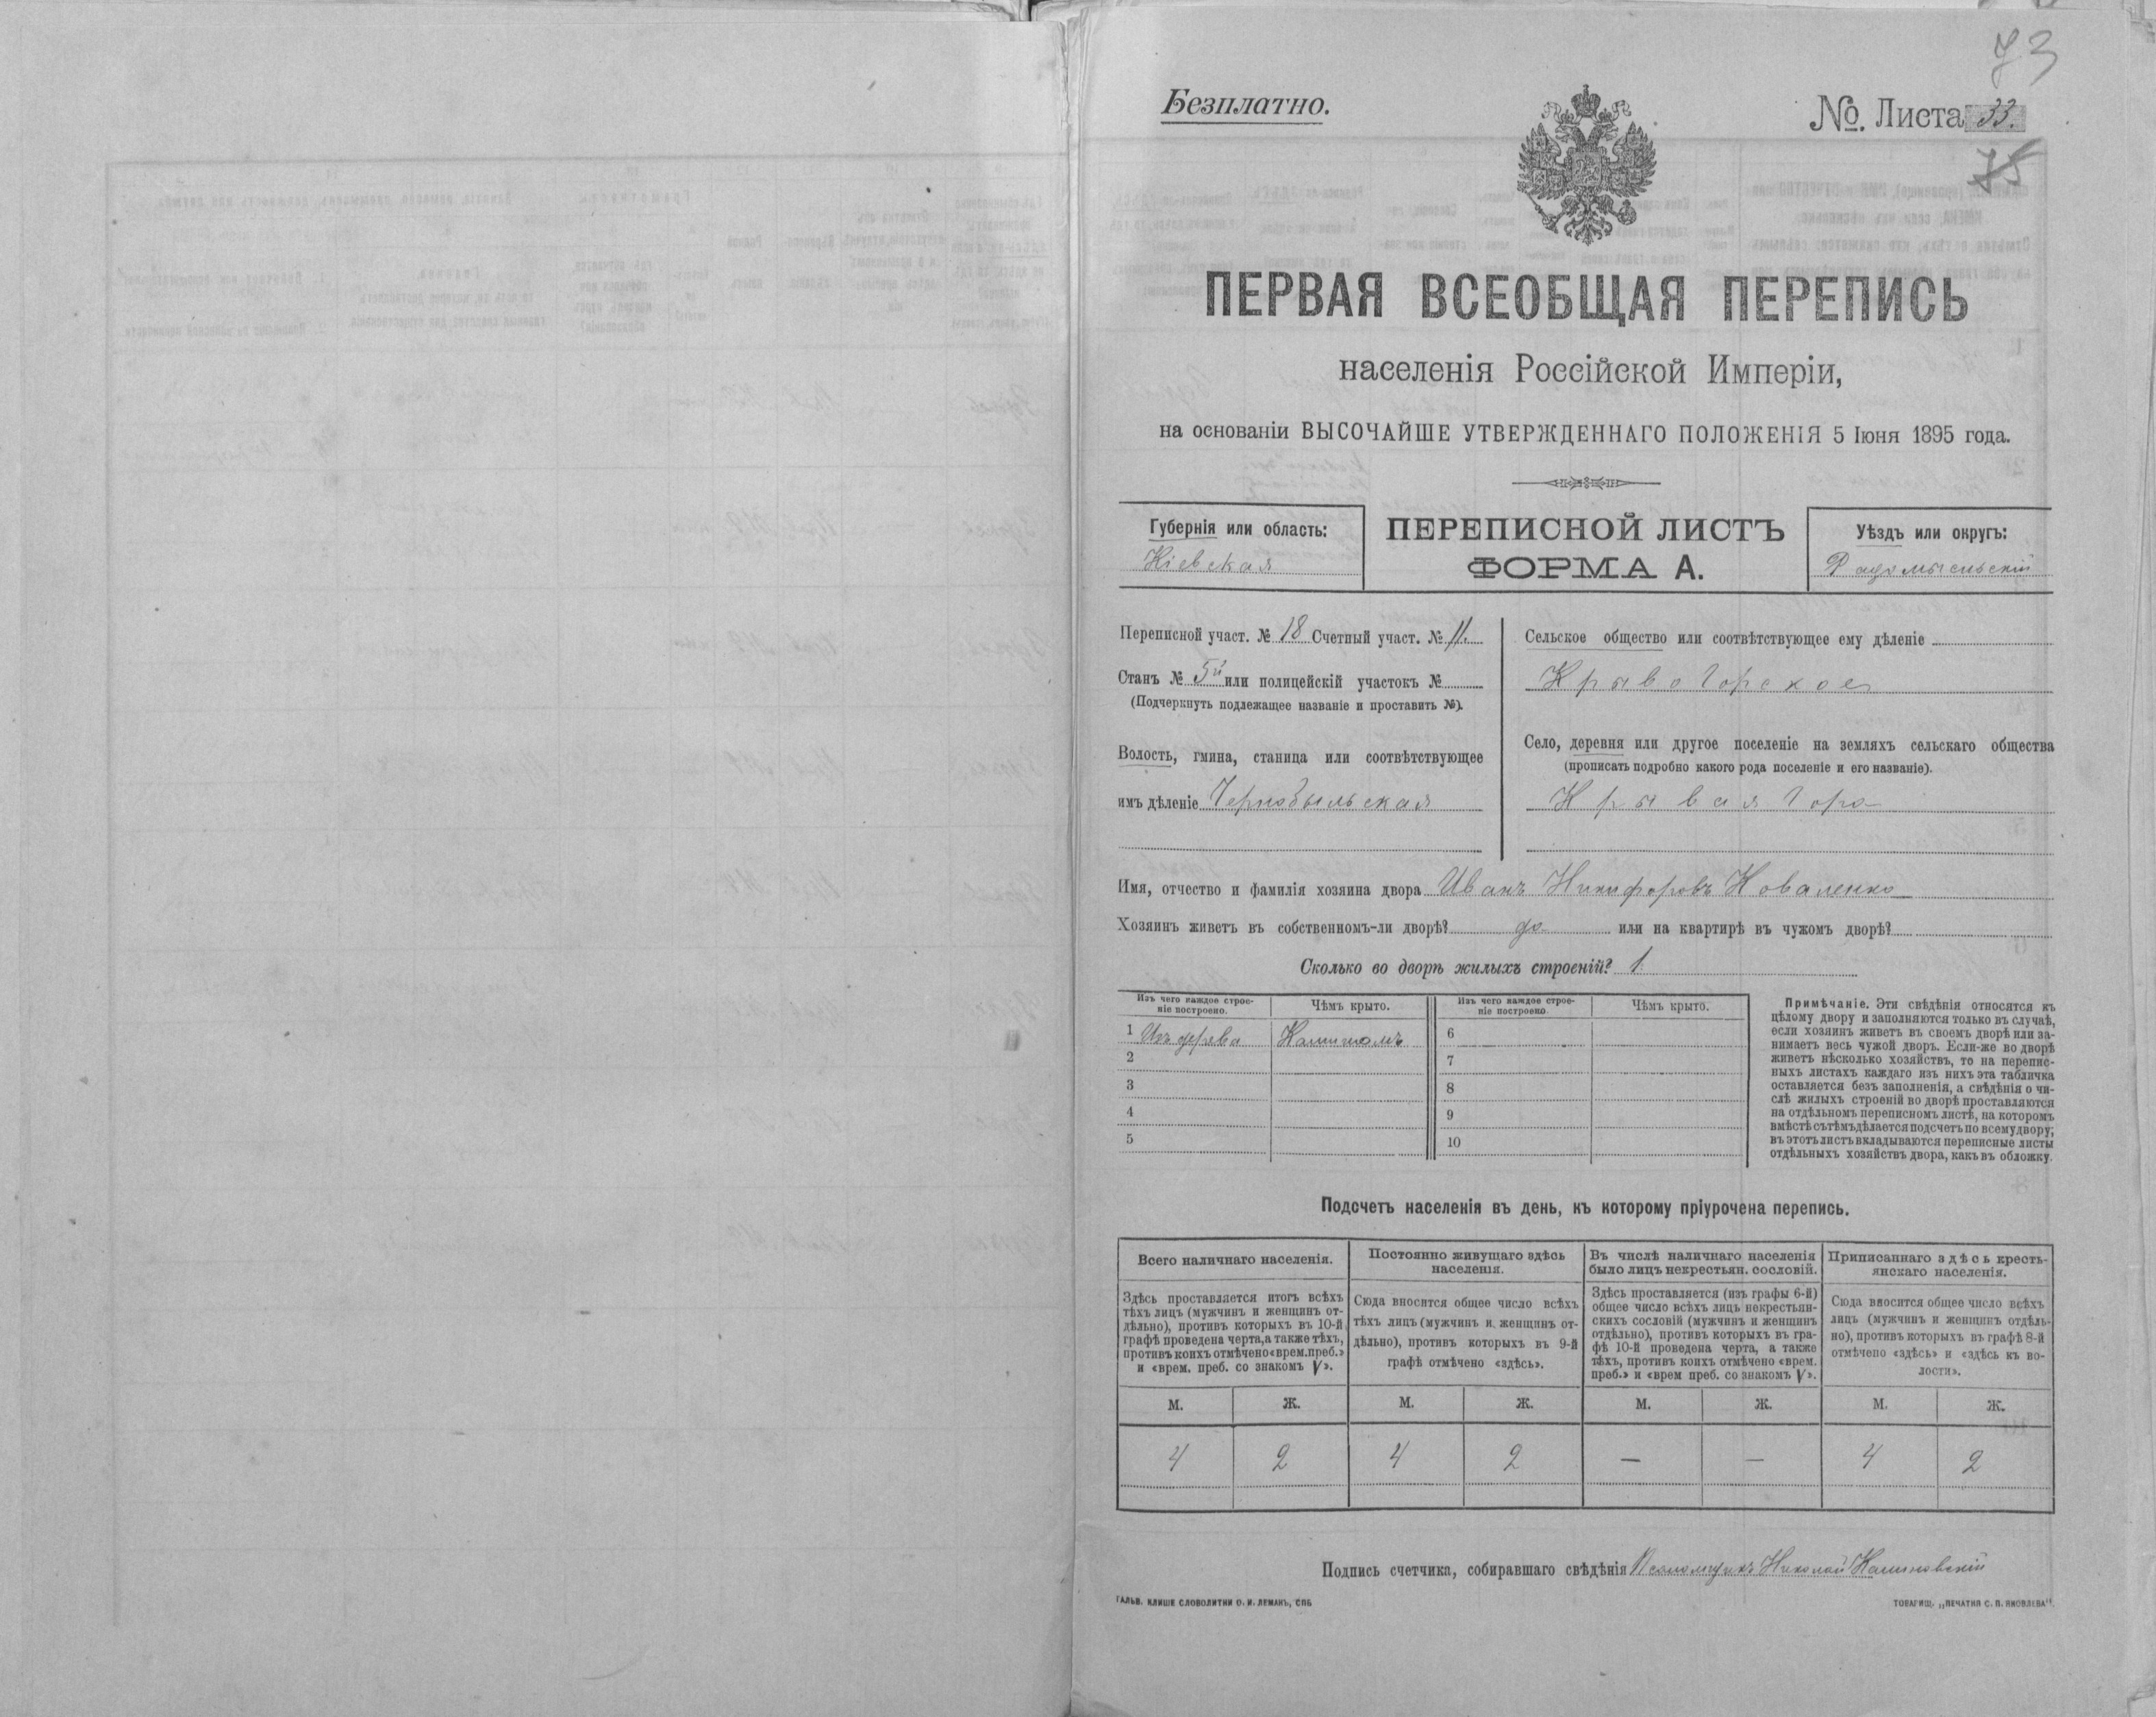 73
Безплатно.
№. Листа 33.
75
ПЕРВАЯ ВСЕОБЩАЯ ПЕРЕПИСЬ
населенія Россійской Имперіи,
на основаніи ВЫСОЧАЙШЕ УТВЕРЖДЕННАГО ПОЛОЖЕНІЯ 5 Іюня 1895 года.
Губернія или область:
Кіевская
ПЕРЕПИСНОЙ ЛИСТЪ
ФОРМА А.
Уѣздъ или округъ:
Радомысльскій
Переписной участ. № 18 Счетный участ. № 11.
Станъ № 5й или полицейскій участокъ №
(Подчеркнуть подлежащее названіе и проставить №).
Волость, гмина, станица или соотвѣтствующее
имъ дѣленіе Чернобыльская
Сельское общество или соотвѣтствующее ему дѣленіе
Крывогорское
Село, деревня или другое поселеніе на земляхъ сельскаго общества
(прописать подробно какого рода поселеніе и его названіе).
Крывая Гора
Имя, отчество и фамилія хозяина двора Иванъ Никифоровъ Коваленко
Хозяинъ живетъ въ собственномъ-ли дворѣ? да или на квартирѣ въ чужомъ дворѣ?
Сколько во дворѣ жилыхъ строеній? 1
Изъ чего каждое строе-
ніе построено.
Чѣмъ крыто.
Изъ чего каждое строе-
ніе построено.
Чѣмъ крыто.
1 Изъ дерева Камышомъ 6
2 7
3 8
4 9
5 10
Примѣчаніе. Эти свѣдѣнія относятся къ
цѣлому двору и заполняются только въ случаѣ,
если хозяинъ живетъ въ своемъ дворѣ или за-
нимаетъ весь чужой дворъ. Если-же во дворѣ
живетъ нѣсколько хозяйствъ, то на перепис-
ныхъ листахъ каждаго изъ нихъ эта табличка
оставляется безъ заполненія, а свѣдѣнія о чи-
слѣ жилыхъ строеній во дворѣ проставляются
на отдѣльномъ переписномъ листѣ, на которомъ
вмѣстѣ сътѣмъ дѣлается подсчетъ по всему двору;
въ этотъ листъ вкладываются переписные листы
отдѣльныхъ хозяйствъ двора, какъ въ обложку.
Подсчетъ населенія въ день, къ которому пріурочена перепись.
Всего наличнаго населенія.
Здѣсь проставляется итогъ всѣхъ
тѣхъ лицъ (мужчинъ и женщинъ от-
дѣльно), противъ которыхъ въ 10-й
графѣ проведена черта, а также тѣхъ,
противъ коихъ отмѣчено «врем. преб.»
и «врем. преб. со знакомъ V».
Постоянно живущаго здѣсь
населенія.
Сюда вносится общее число всѣхъ
тѣхъ лицъ (мужчинъ и женщинъ от-
дѣльно), противъ которыхъ въ 9-й
графѣ отмѣчено «здѣсь».
Въ числѣ наличнаго населенія
было лицъ некрестьян. сословій.
Здѣсь проставляется (изъ графы 6-й)
общее число всѣхъ лицъ некрестьян-
скихъ сословій (мужчинъ и женщинъ
отдѣльно), противъ которыхъ въ гра-
фѣ 10-й проведена черта, а также
тѣхъ, противъ коихъ отмѣчено «врем.
преб.» и «врем преб. со знакомъ V».
Приписаннаго здѣсь кресть-
янскаго населенія.
Сюда вносится общее число всѣхъ
лицъ (мужчинъ и женщинъ отдѣль-
но), противъ которыхъ въ графѣ 8-й
отмѣчено «здѣсь» и «здѣсь къ во-
лости».
М. Ж. М. Ж. М. Ж. М. Ж.
4 2 4 2 — — 4 2
Подпись счетчика, собиравшаго свѣдѣнія Псаломщикъ Николай Калиновскій
ГАЛЬВ. КЛИШЕ СЛОВОЛИТНИ О. И. ЛЕМАНЪ, СПБ
ТОВАРИЩ. „ПЕЧАТНЯ С. П. ЯКОВЛЕВА".